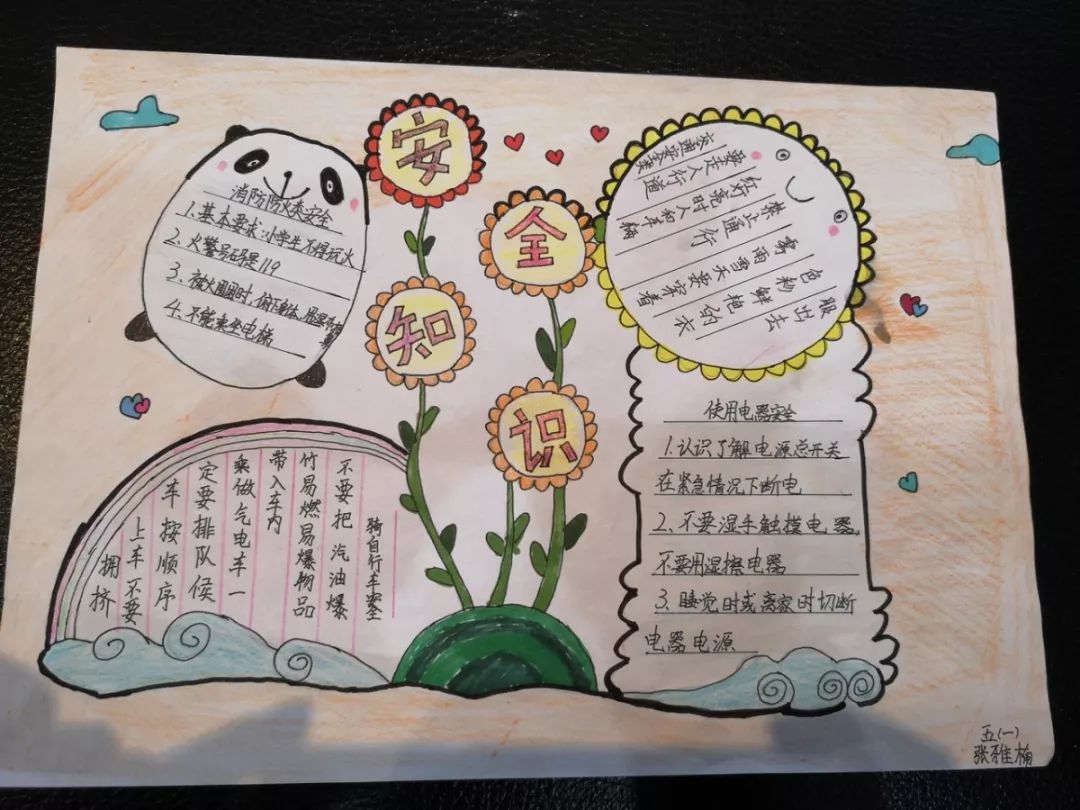 安
全
知
识
消防防火类安全
1.基本要求:小学生不得玩火
2、火警号码是119
3、被火围困时,俯下身体,用湿布捂
4、不能乘坐电梯
交通安全类
要走人行道
红灯亮时人和车辆
禁止通行
雾雨雪天要穿着
色秒鲜艳的衣
服出去
骑自行车安全
不要把汽油爆
竹易燃易爆物品
带入车内
乘做气电车一
定要排队候
车按顺序
上车不要
拥挤
使用电器安全
1.认识了解电源总开关
在紧急情况下断电
2、不要湿手触摸电器,
不要用湿擦电器
3、睡觉时或离家时切断
电器电源
五(一)
张雅楠